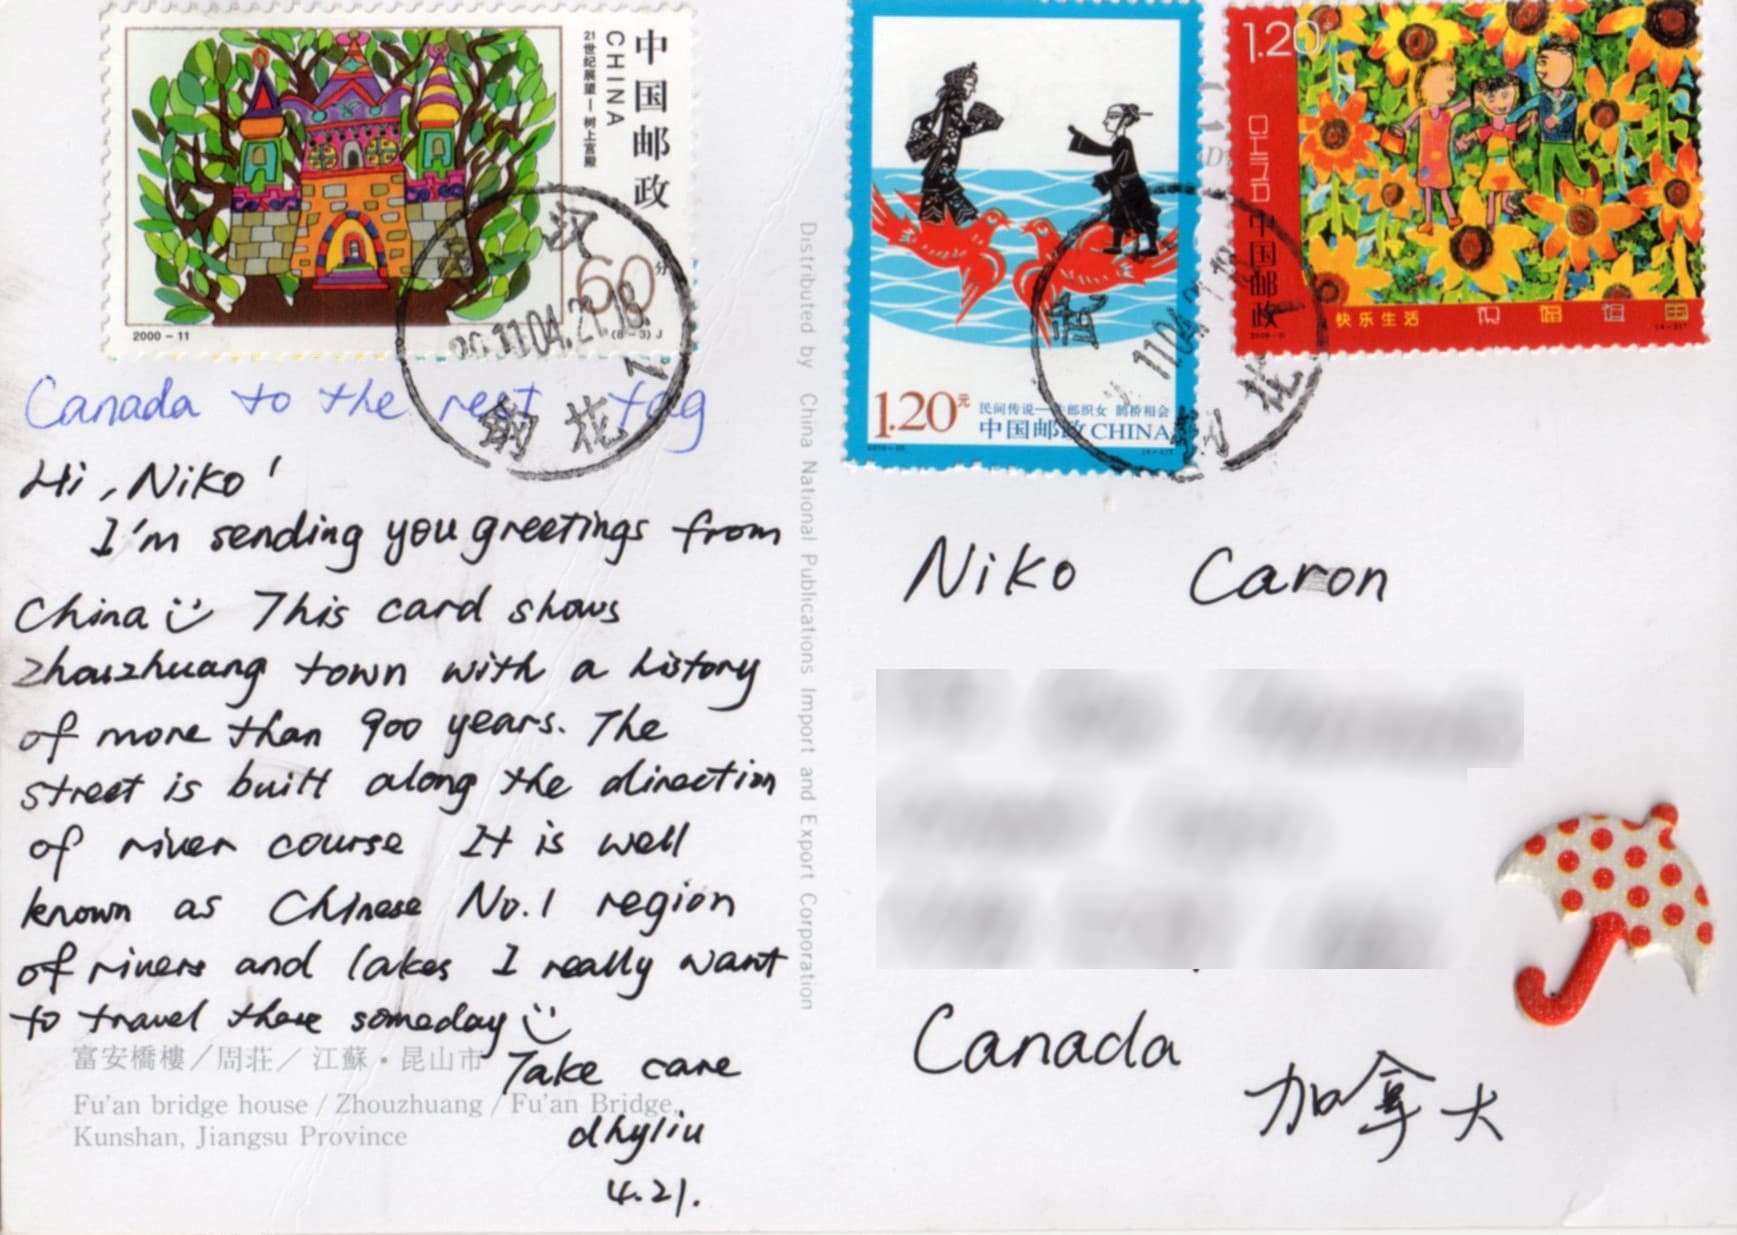 中国邮政
CHINA
21世纪展望—树上宫殿
60分
2000-11
(8-3) J
1.20元
民间传说—牛郎织女 鹊桥相会
中国邮政 CHINA
1.20
CHINA
中国邮政
快乐生活
武汉
2011.04.21.18
钢花
Canada to the rest tag
Hi, Niko!
I'm sending you greetings from
China This card shows
Zhouzhuang town with a history
of more than 900 years. The
street is built along the direction
of river course It is well
known as Chinese No.1 region
of rivers and lakes I really want
to travel there someday
Take care
dhyliu
4.21.
富安橋樓／周荘／江蘇・昆山市
Fu'an bridge house / Zhouzhuang / Fu'an Bridge,
Kunshan, Jiangsu Province
Distributed by China National Publications Import and Export Corporation
Niko Caron
Canada
加拿大